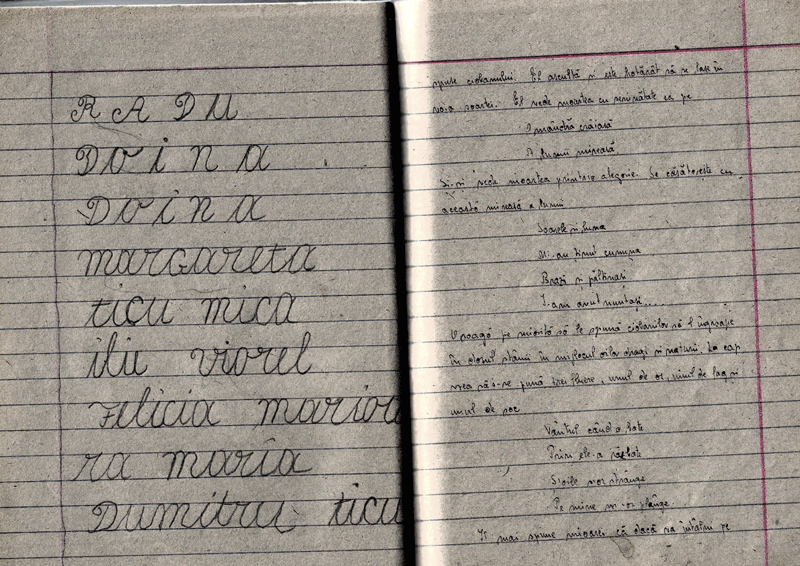 RADU
Doina
Doina
margareta
ticu mica
iliu viorel
Felicia marioa
ra maria
Dumitru ticu
spune ciobanului. El ascultă și este hotărât să se lase în
voia soartei. El vede moartea cu seninătate ca pe
O mândră crăiasă
A lumii mireasă
Își vede moartea printr-o alegorie. Se căsătorește cu
această mireasă a lumii
Soarele și luna
Mi-au ținut cununa
Brazi și păltinași
I-am avut nuntași...
O roagă pe mioriță să le spună ciobanilor să-l îngroape
în dosul stânii în mijlocul oilor dragi și naturii. La cap
vrea să i se pună trei fluiere, unul de os, unul de fag și
unul de soc
Vântul când o bate
Prin ele-a răzbate
Ș-oile s-or strânge
Pe mine m-or plânge.
Îi mai spune mioarei că dacă va întâlni pe